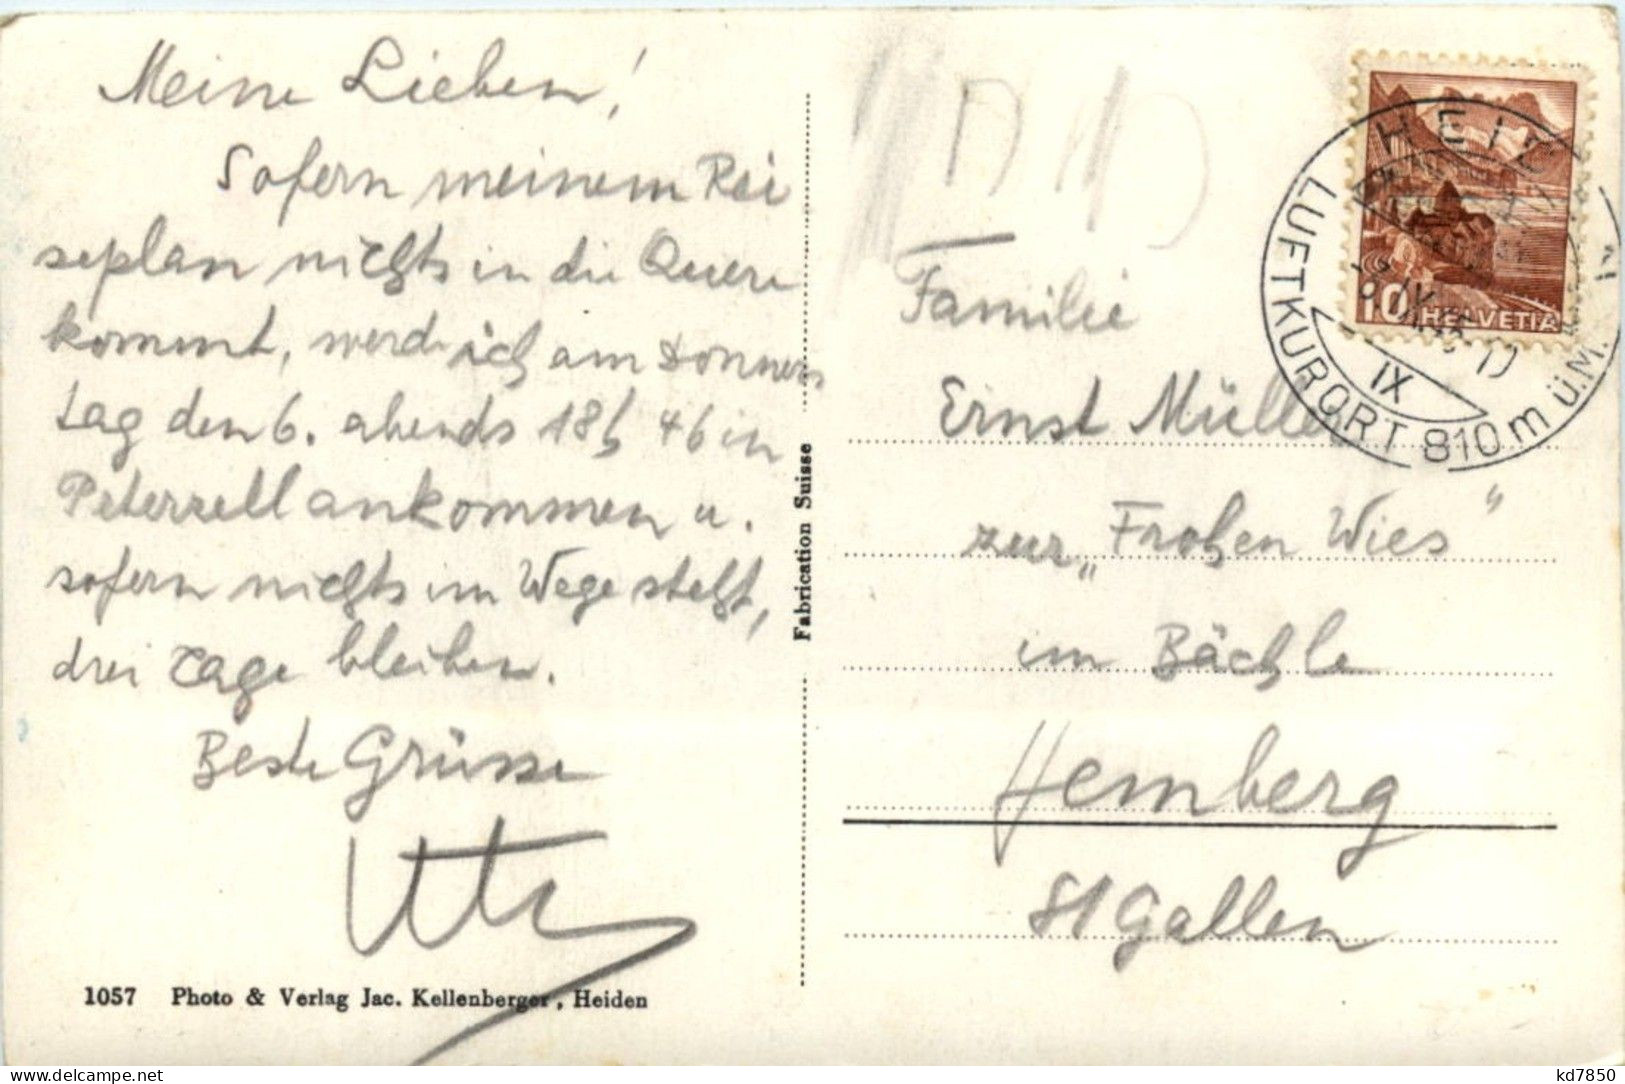 Meine Lieben!
Sofern meinem Rei
seplan nichts in die Quere
kommt, werde ich am Donners
tag den 6. abends 18h 46 in
Peterzell ankommen u.
sofern nichts im Wege steht,
drei Tage bleiben.
Beste Grüsse
1057 Photo & Verlag Jac. Kellenberger, Heiden
Fabrication Suisse
HEID
LUFTKURORT 810 m ü.M.
IX
10 HELVETIA
Familie
Ernst Müller
zur „Frohen Wies“
im Bächle
Hemberg
St Gallen
kd7850